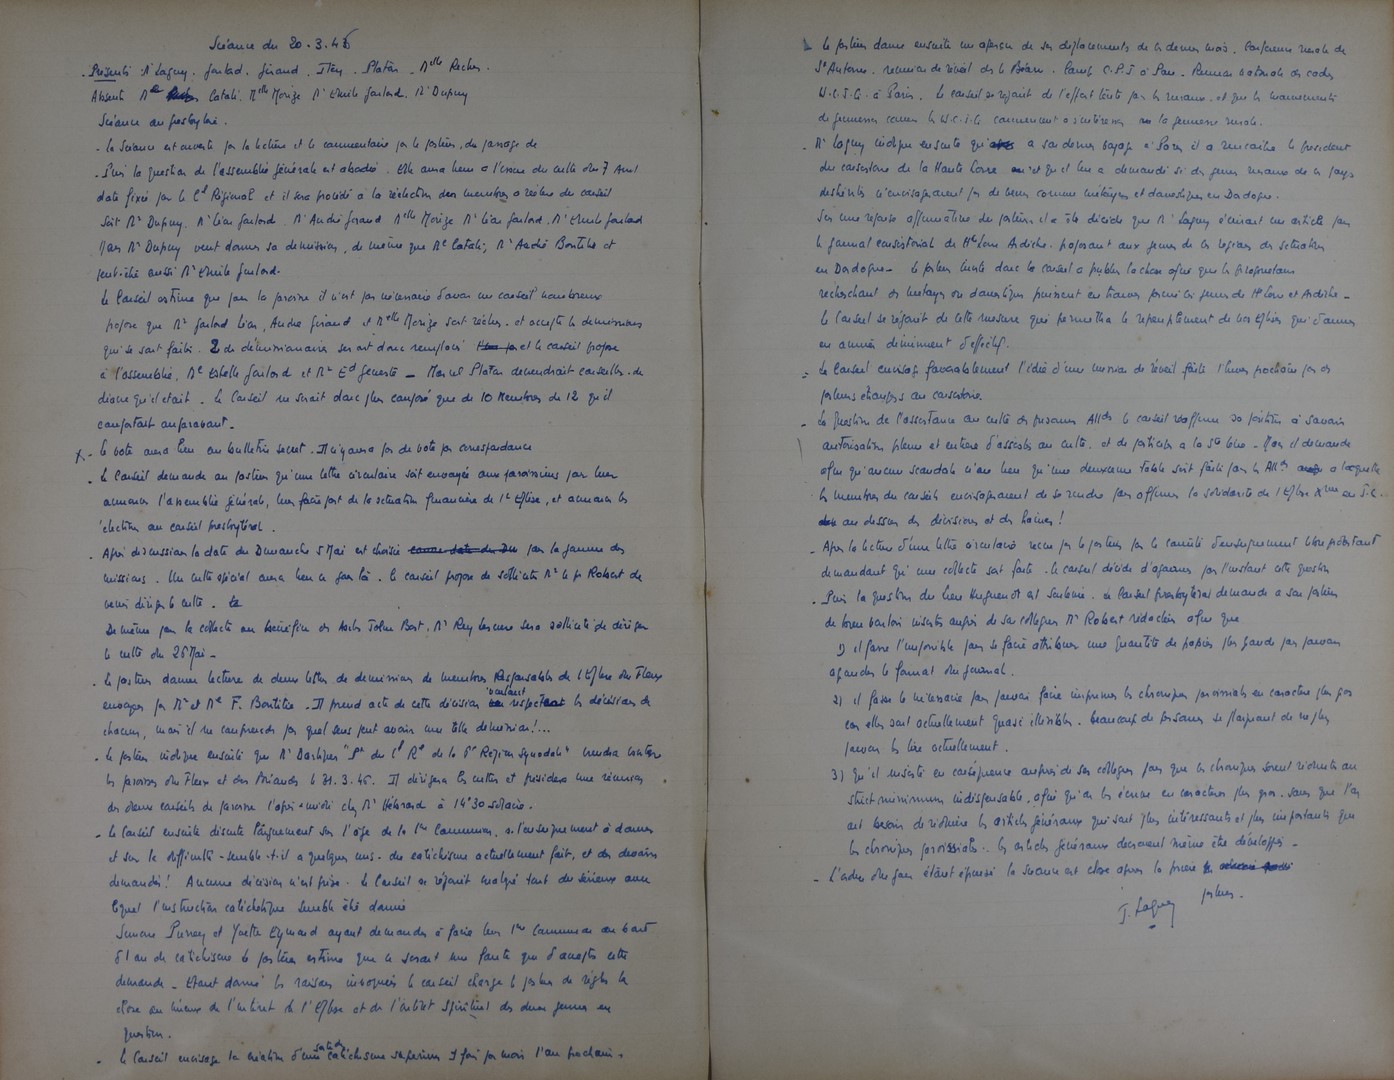 Séance du 20.3.46
Présents Mr Laguy. Gaulard. Giraud. Itey. Platan. Melle Reches.
Absents Catali. Melle Morize Mr Emile Gaulard. Mr Dupuy
Séance au presbytère.
- la Séance est ouverte par la lecture et le commentaire par le pasteur, du passage de
- Puis la question de l'assemblée générale est abordée. Elle aura lieu à l'issue du culte du 7 Avril
date fixée par le Cl Régional et il sera procédé à la réélection des membres à réélire du conseil
soit Mr Dupuy. Mr Léon Gaulard. Mr André Giraud Melle Morize Mr Emile Gaulard
Mais Mr Dupuy veut donner sa démission, de même que Me Catali, Mr André Boutilié et
peut-être aussi Mr Emile Gaulard.
Le Conseil estime que pour la paroisse il n'est pas nécessaire d'avoir un conseil nombreux
propose que Mr Gaulard Léon, André Giraud et Melle Morize soit réélus. et accepte les démissions
qui se sont faites. 2 des démissionnaires seront donc remplacés et le conseil propose
à l'assemblée, Me Estelle Gaulard et Mr Ed Geneste - Marcel Platan deviendrait conseiller. de
diacre qu'il était. Le Conseil ne serait donc plus composé que de 10 Membres de 12 qu'il
comportait auparavant.
x - le vote aura lieu au bulletin secret. Il n'y aura pas de vote par correspondance
- le Conseil demande au pasteur qu'une lettre circulaire soit envoyée aux paroissiens pour leur
annoncer l'assemblée générale, leur faire part de la situation financière de l'Eglise, et annoncer les
élections au conseil presbytéral.
- Après discussion la date du Dimanche 5 Mai est choisie pour la journée des
missions. Un culte spécial aura lieu ce jour là. le conseil propose de solliciter Mr le p. Robert de
venir diriger le culte.
De même pour la collecte au bénéfice des Asiles John Bost. Mr Rey Lescure sera sollicité de diriger
le culte du 26 Mai -
- le pasteur donne lecture de deux lettres de démission de membres Responsables de l'Eglise du Fleix
envoyées par Mr et Me F. Boutilié. Il prend acte de cette décision voulant respecter les décisions de
chacun, mais il ne comprends pas quel sens peut avoir une telle démission!...
- le pasteur indique ensuite que Mr "St du Cl Rl de la 6e Région Synodale" viendra visiter
les paroisses du Fleix et des Briands le 31.3.46. Il dirigera les cultes et présidera une réunion
des deux conseils de paroisse l'après-midi chez Mr Hébrard à 14'30 solaire.
- le Conseil ensuite discute longuement sur l'âge de la 1ère Communion, sur l'enseignement à donner
et sur la difficulté - semble-t-il à quelques uns - du catéchisme actuellement fait, et des devoirs
demandés! Aucune décision n'est prise. le Conseil se réjouit malgré tout du sérieux avec
lequel l'instruction catéchétique semble être donnée
Simone Purrey et Yvette Eymard ayant demandés à faire leur 1ère Communion au bout
d'1 an de catéchisme le pasteur estime que ce serait une faute que d'accepter cette
demande - Etant donné les raisons invoquées le conseil charge le pasteur de régler la
chose au mieux de l'intérêt de l'Eglise et de l'intérêt spirituel des deux jeunes en
question.
- le Conseil envisage la création d'une catéchisme supérieur 1 fois par mois l'an prochain.
- le pasteur donne ensuite un aperçu de ses déplacements de ces derniers mois. Conférence rurale de
St Antoine. réunion de réveil dans le Béarn. Camp à Pau. Réunion nationale des cadres
U.C.J.G. à Paris. Le conseil se réjouit de l'effort tenté par les ruraux. et que les mouvements
de jeunesse comme les U.C.J.G. commencent à s'intéresser à la jeunesse rurale.
- Mr Laguy indique ensuite qu'à son dernier voyage à Paris il a rencontré le président
du consistoire de la Haute Loire et qu'il lui a demandé si des jeunes ruraux de ces pays
déshérités n'envisageraient pas de venir comme métayers et domestiques en Dordogne.
Sur une réponse affirmative du pasteur il a été décidé que Mr Laguy écrirait un article pour
le journal consistorial de Hte Loire Ardèche. proposant aux jeunes de ces régions des situations
en Dordogne - Le pasteur invite donc le conseil à publier la chose afin que les propriétaires
recherchant des métayers ou domestiques puissent en trouver parmi les jeunes de Hte Loire et Ardèche -
Le Conseil se réjouit de cette mesure qui permettra le repeuplement de nos Eglises qui d'années
en années diminuent d'effectif.
- le Conseil envisage favorablement l'idée d'une mission de réveil faite l'hiver prochain par des
pasteurs étrangers au consistoire.
- La question de l'assistance au culte des prisonniers Allds le conseil réaffirme sa position à savoir
autorisation pleine et entière d'assister au culte. et de participer à la Ste Cène - Mais il demande
afin qu'aucun scandale n'ait lieu qu'une deuxième table soit faite pour les Allds à laquelle
les membres du conseil envisageraient de se rendre pour affirmer la solidarité de l'Eglise Xme en J.C.
au dessus des divisions et des haines!
- Après la lecture d'une lettre circulaire reçue par le pasteur par le comité d'enseignement libre protestant
demandant qu'une collecte soit faite. le conseil décide d'ajourner pour l'instant cette question
- Puis la question du lien Huguenot est soulevée. le Conseil presbytéral demande à son pasteur
de bien vouloir insister auprès de son collègue Mr Robert rédacteur afin que
1) il fasse l'impossible pour se faire attribuer une quantité de papier plus grande pour pouvoir
agrandir le format du journal.
2) il fasse le nécessaire pour pouvoir faire imprimer les chroniques paroissiales en caractère plus gros
car elles sont actuellement quasi illisibles. beaucoup de personnes se plaignant de ne plus
pouvoir les lire actuellement.
3) qu'il insiste en conséquence auprès de ses collègues pour que les chroniques soient réduites au
strict minimum indispensable, afin qu'on les écrive en caractères plus gros. sans que l'on
ait besoin de réduire les articles généraux qui sont plus intéressants et plus importants que
les chroniques paroissiales. les articles généraux devraient même être développés -
- L'ordre du jour étant épuisé la séance est close après la prière
pasteur.
J. Laguy